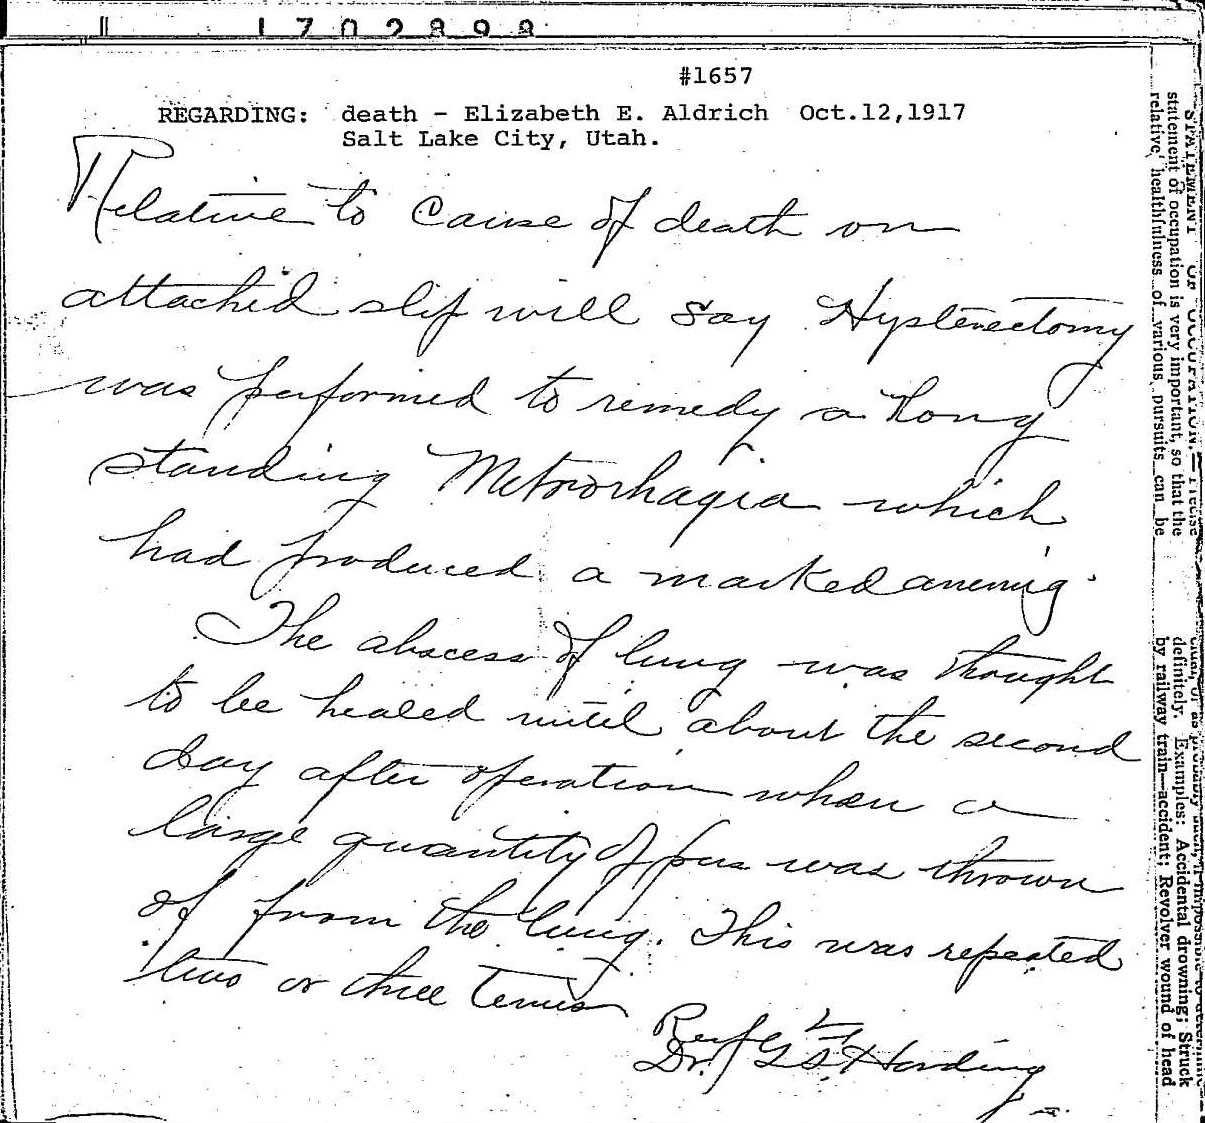 1702898
#1657
REGARDING: death - Elizabeth E. Aldrich Oct.12,1917
Salt Lake City, Utah.
Relative to cause of death on
attached slip will say Hysterectomy
was performed to remedy a long
standing Metrorhagia which
had produced a marked anemia.
The abscess of lung was thought
to be healed until about the second
day after operation when a
large quantity of pus was thrown
of from the lung. This was repeated
two or three times
Dr. Harding
STATEMENT OF OCCUPATION.—Please
statement of occupation is very important, so that the
relative healthfulness of various pursuits can be
definitely. Examples: Accidental drowning; Struck
by railway train—accident; Revolver wound of head